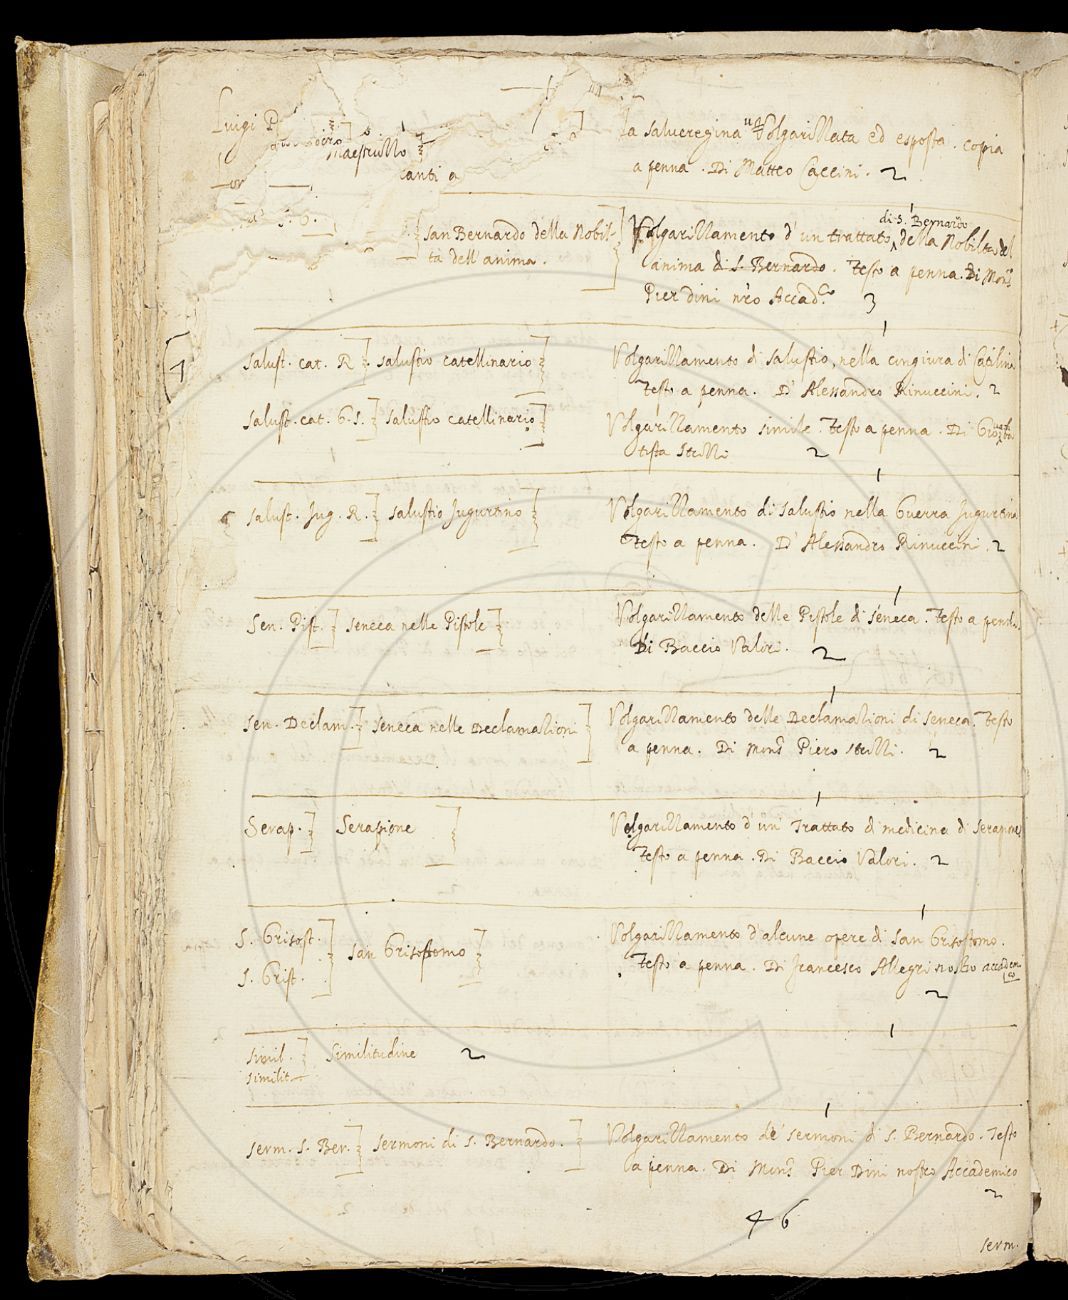 Luigi P
Maestrillo
canti a
la salveregina Volgarizzata ed esposta. copia
a penna. Di Matteo Caccini. 2
San Bernardo della Nobil-
tà dell'anima.
di S. Bernardo
Volgarizzamento d'un trattato, della Nobiltà del
anima di S. Bernardo. Testo a penna. Di Mons.
Pier dini nro Accad.co 3
Salust. cat. R ] Salustio catellinario ]
Volgarizzamento di Salustio, nella congiura di Catilina
Testo a penna. D'Alessandro Rinuccini. 2
Salust. cat. G. S. ] Salustio catellinario ]
Volgarizzamento simile. Testo a penna. Di Giovanba
tista Strozzi 2
Salust. Jug. R. ] Salustio Jugurtino ]
Volgarizzamento di Salustio nella Guerra Jugurtina
Testo a penna. D'Alessandro Rinuccini. 2
Sen. Pist. ] Seneca nelle Pistole ]
Volgarizzamento delle Pistole di Seneca. Testo a penna.
Di Baccio Valori. 2
Sen. Declam. ] Seneca nelle Declamazioni ]
Volgarizzamento delle Declamazioni di Seneca. Testo
a penna. Di Mons. Piero 2
Serap. ] Serapione ]
Volgarizzamento d'un Trattato di medicina di Serapione
Testo a penna. Di Baccio Valori. 2
S. Grisost.
S. Grist. ] San Grisostomo ]
Volgarizzamento d'alcune opere di San Grisostomo.
Testo a penna. Di Francesco Allegri nostro accademi
co
2
Simil. ] Similitudine 2
Similit.
Serm. S. Ber. ] Sermoni di S. Bernardo. ]
Volgarizzamento de' Sermoni di S. Bernardo. Testo
a penna. Di Mons. Pier Dini nostro Accademico
2
46
Serm.